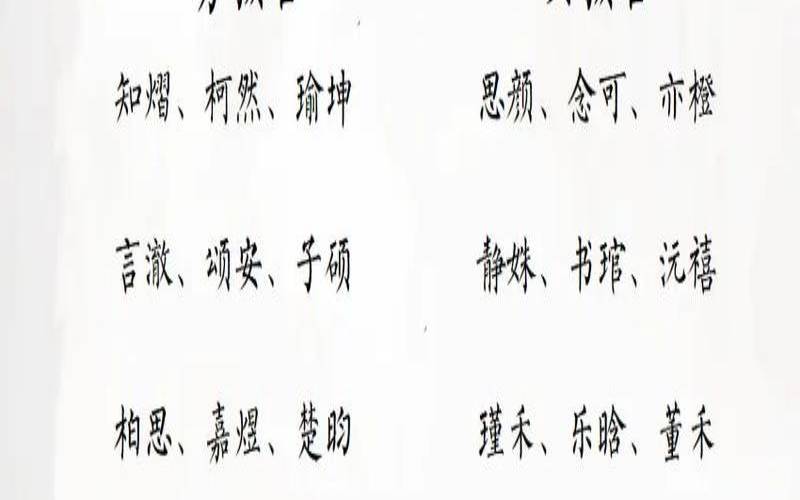 知熠、柯然、瑜坤
思颜、念可、亦橙
言澈、颂安、子硕
静姝、书琯、沅禧
柏思、嘉煜、楚昀
瑾禾、乐晗、董禾